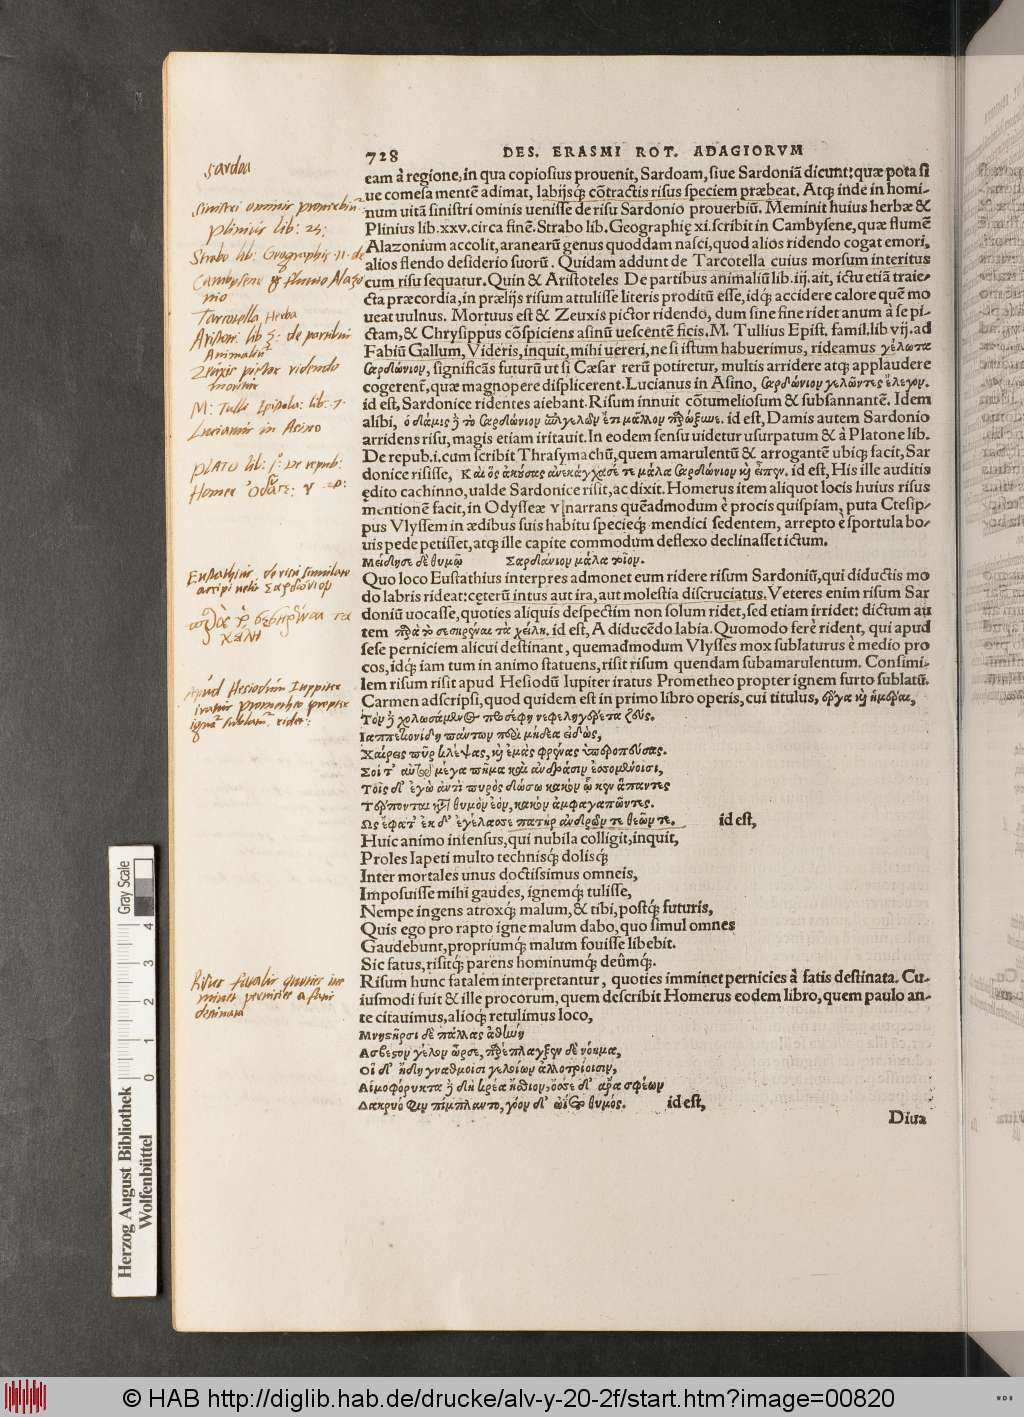 728 DES. ERASMI ROT. ADAGIORVM
eam à regione, in qua copiosius prouenit, Sardoam, siue Sardoniã dicunt: quæ pota si
ue comesa mentē adimat, labijsq́; cõtractis risus speciem præbeat. Atq; inde in homi-
num uitã sinistri ominis uenisse de risu Sardonio prouerbiũ. Meminit huius herbæ &
Plinius lib. xxv. circa finē. Strabo lib. Geographię xi. scribit in Cambysene, quæ flumē
Alazonium accolit, aranearũ genus quoddam nasci, quod alios ridendo cogat emori,
alios flendo desiderio suorũ. Quidam addunt de Tarcotella cuius morsum interitus
cum risu sequatur. Quin & Aristoteles De partibus animaliũ lib. iij. ait, ictu etiã traie-
cta præcordia, in prælijs risum attulisse literis proditũ esse, idq; accidere calore quē mo
ueat uulnus. Mortuus est & Zeuxis pictor ridendo, dum sine fine ridet anum à se pi-
ctam, & Chrysippus cõspiciens asinũ uescentē ficis. M. Tullius Epist. famil. lib vij. ad
Fabiũ Gallum, Videris, inquit, mihi uereri, ne si istum habuerimus, rideamus γέλωτα
σαρδώνιον, significãs futurũ ut si Cæsar rerũ potiretur, multis arridere atq; applaudere
cogerent̃, quæ magnopere displicerent. Lucianus in Asino, σαρδώνιον γελῶντες ἔλεγον.
id est, Sardonice ridentes aiebant. Risum innuit cõtumeliosum & subsannantē. Idem
alibi, ὁ δάμις ἢ τὸ σαρδώνιον ἐπιγελῶν ἔτι μᾶλλον παρώξυνε. id est, Damis autem Sardonio
arridens risu, magis etiam irritauit. In eodem sensu uidetur usurpatum & à Platone lib.
De repub. i. cum scribit Thrasymachũ, quem amarulentũ & arrogantē ubiq; facit, Sar
donice risisse, Καὶ ὃς ἀκούσας ἀνεκάγχασέ τε μάλα σαρδώνιον καὶ εἶπεν. id est, His ille auditis
edito cachinno, ualde Sardonice risit, ac dixit. Homerus item aliquot locis huius risus
mentionē facit, in Odysseæ υ narrans quēadmodum è procis quispiam, puta Ctesip-
pus Vlyssem in ædibus suis habitu specieq; mendici sedentem, arrepto è sportula bo-
uis pede petisset, atq; ille capite commodum deflexo declinasset ictum.
Μείδησε δὲ θυμῷ Σαρδώνιον μάλα τοῖον.
Quo loco Eustathius interpres admonet eum ridere risum Sardoniũ, qui diductis mo
do labris rideat: ceterũ intus aut ira, aut molestia discruciatus. Veteres enim risum Sar
doniũ uocasse, quoties aliquis despectim non solum ridet, sed etiam irridet: dictum au
tem παρὰ τὸ σεσηρέναι τὰ χείλη. id est, A diducēdo labia. Quomodo ferè rident, qui apud
sese perniciem alicui destinant, quemadmodum Vlysses mox sublaturus è medio pro
cos, idq; iam tum in animo statuens, risit risum quendam subamarulentum. Consimi-
lem risum risit apud Hesiodũ Iupiter iratus Prometheo propter ignem furto sublatũ.
Carmen adscripsi, quod quidem est in primo libro operis, cui titulus, ἔργα καὶ ἡμέραι,
Τὸν ἢ χολωσάμενος προσέφη νεφεληγερέτα ζεύς.
Ιαπετιονίδη πάντων πέρι μήδεα εἰδὼς,
Χαίρεις πῦρ κλέψας, καὶ ἐμὰς φρένας ὑπεροπεύσας.
Σοί τ' αὐτῷ μέγα πῆμα καὶ ἀνδράσιν ἐσσομένοισι,
Τοῖς δ' ἐγὼ ἀντὶ πυρὸς δώσω κακὸν ᾧ κεν ἅπαντες
Τέρπονται κατὰ θυμὸν ἑὸν, κακὸν ἀμφαγαπῶντες.
Ὣς ἔφατ' ἐκ δ' ἐγέλασσε πατὴρ ἀνδρῶν τε θεῶν τε. id est,
Huic animo infensus, qui nubila colligit, inquit,
Proles Iapeti multo technisq́; dolisq́;
Inter mortales unus doctissimus omneis,
Imposuisse mihi gaudes, ignemq́; tulisse,
Nempe ingens atroxq́; malum, & tibi, postq́; futuris,
Quis ego pro rapto igne malum dabo, quo simul omnes
Gaudebunt, propriumq́; malum fouisse libebit.
Sic fatus, risitq́; parens hominumq́; deûmq́;.
Risum hunc fatalem interpretantur, quoties imminet pernicies à fatis destinata. Cu-
iusmodi fuit & ille procorum, quem describit Homerus eodem libro, quem paulo an-
te citauimus, alioq; retulimus loco,
Μνηστῆρσι δὲ πάλλας ἀθήνη
Ασβεστον γέλον ὦρσε, παρέπλαγξεν δὲ νόημα,
Οἱ δ' ἤδη γναθμοῖσι γελοίων ἀλλοτρίοισιν,
Αἱμοφόρυκτα ἢ δὴ κρέα ἤσθιον, ὄσσε δ' ἄρα σφέων
Δακρυόφιν πίμπλαντο, γόον δ' ὠΐετο θυμός. id est,
Diua
sardoa
sinistri ominis prouerbiũ
Plinius lib: 25:
Strabo lib: Geographię 11. de
Cambysene & flumine Alazo
nio
Tarcotella, Herba
Aristot: lib 3: de partibus
Animaliũ
Zeuxis pictor ridendo
moritur
M: Tulli Epistola: lib: 7
Lucianus in Asino
PLATO lib: 1: De repub:
Homer Ὀδυσσ: υ
Eustathius de risu simulato
accipi uelit Σαρδώνιον
παρὰ τὸ σεσηρέναι τὰ
χείλη
Apud Hesiodum Iuppiter
iratus prometheo propter
ignẽ sublatũ ridet:
Risus fatalis quoties im
minet pernicies a fatis
destinata
Gray Scale
4
3
2
1
0
Herzog August Bibliothek
Wolfenbüttel
© HAB http://diglib.hab.de/drucke/alv-y-20-2f/start.htm?image=00820